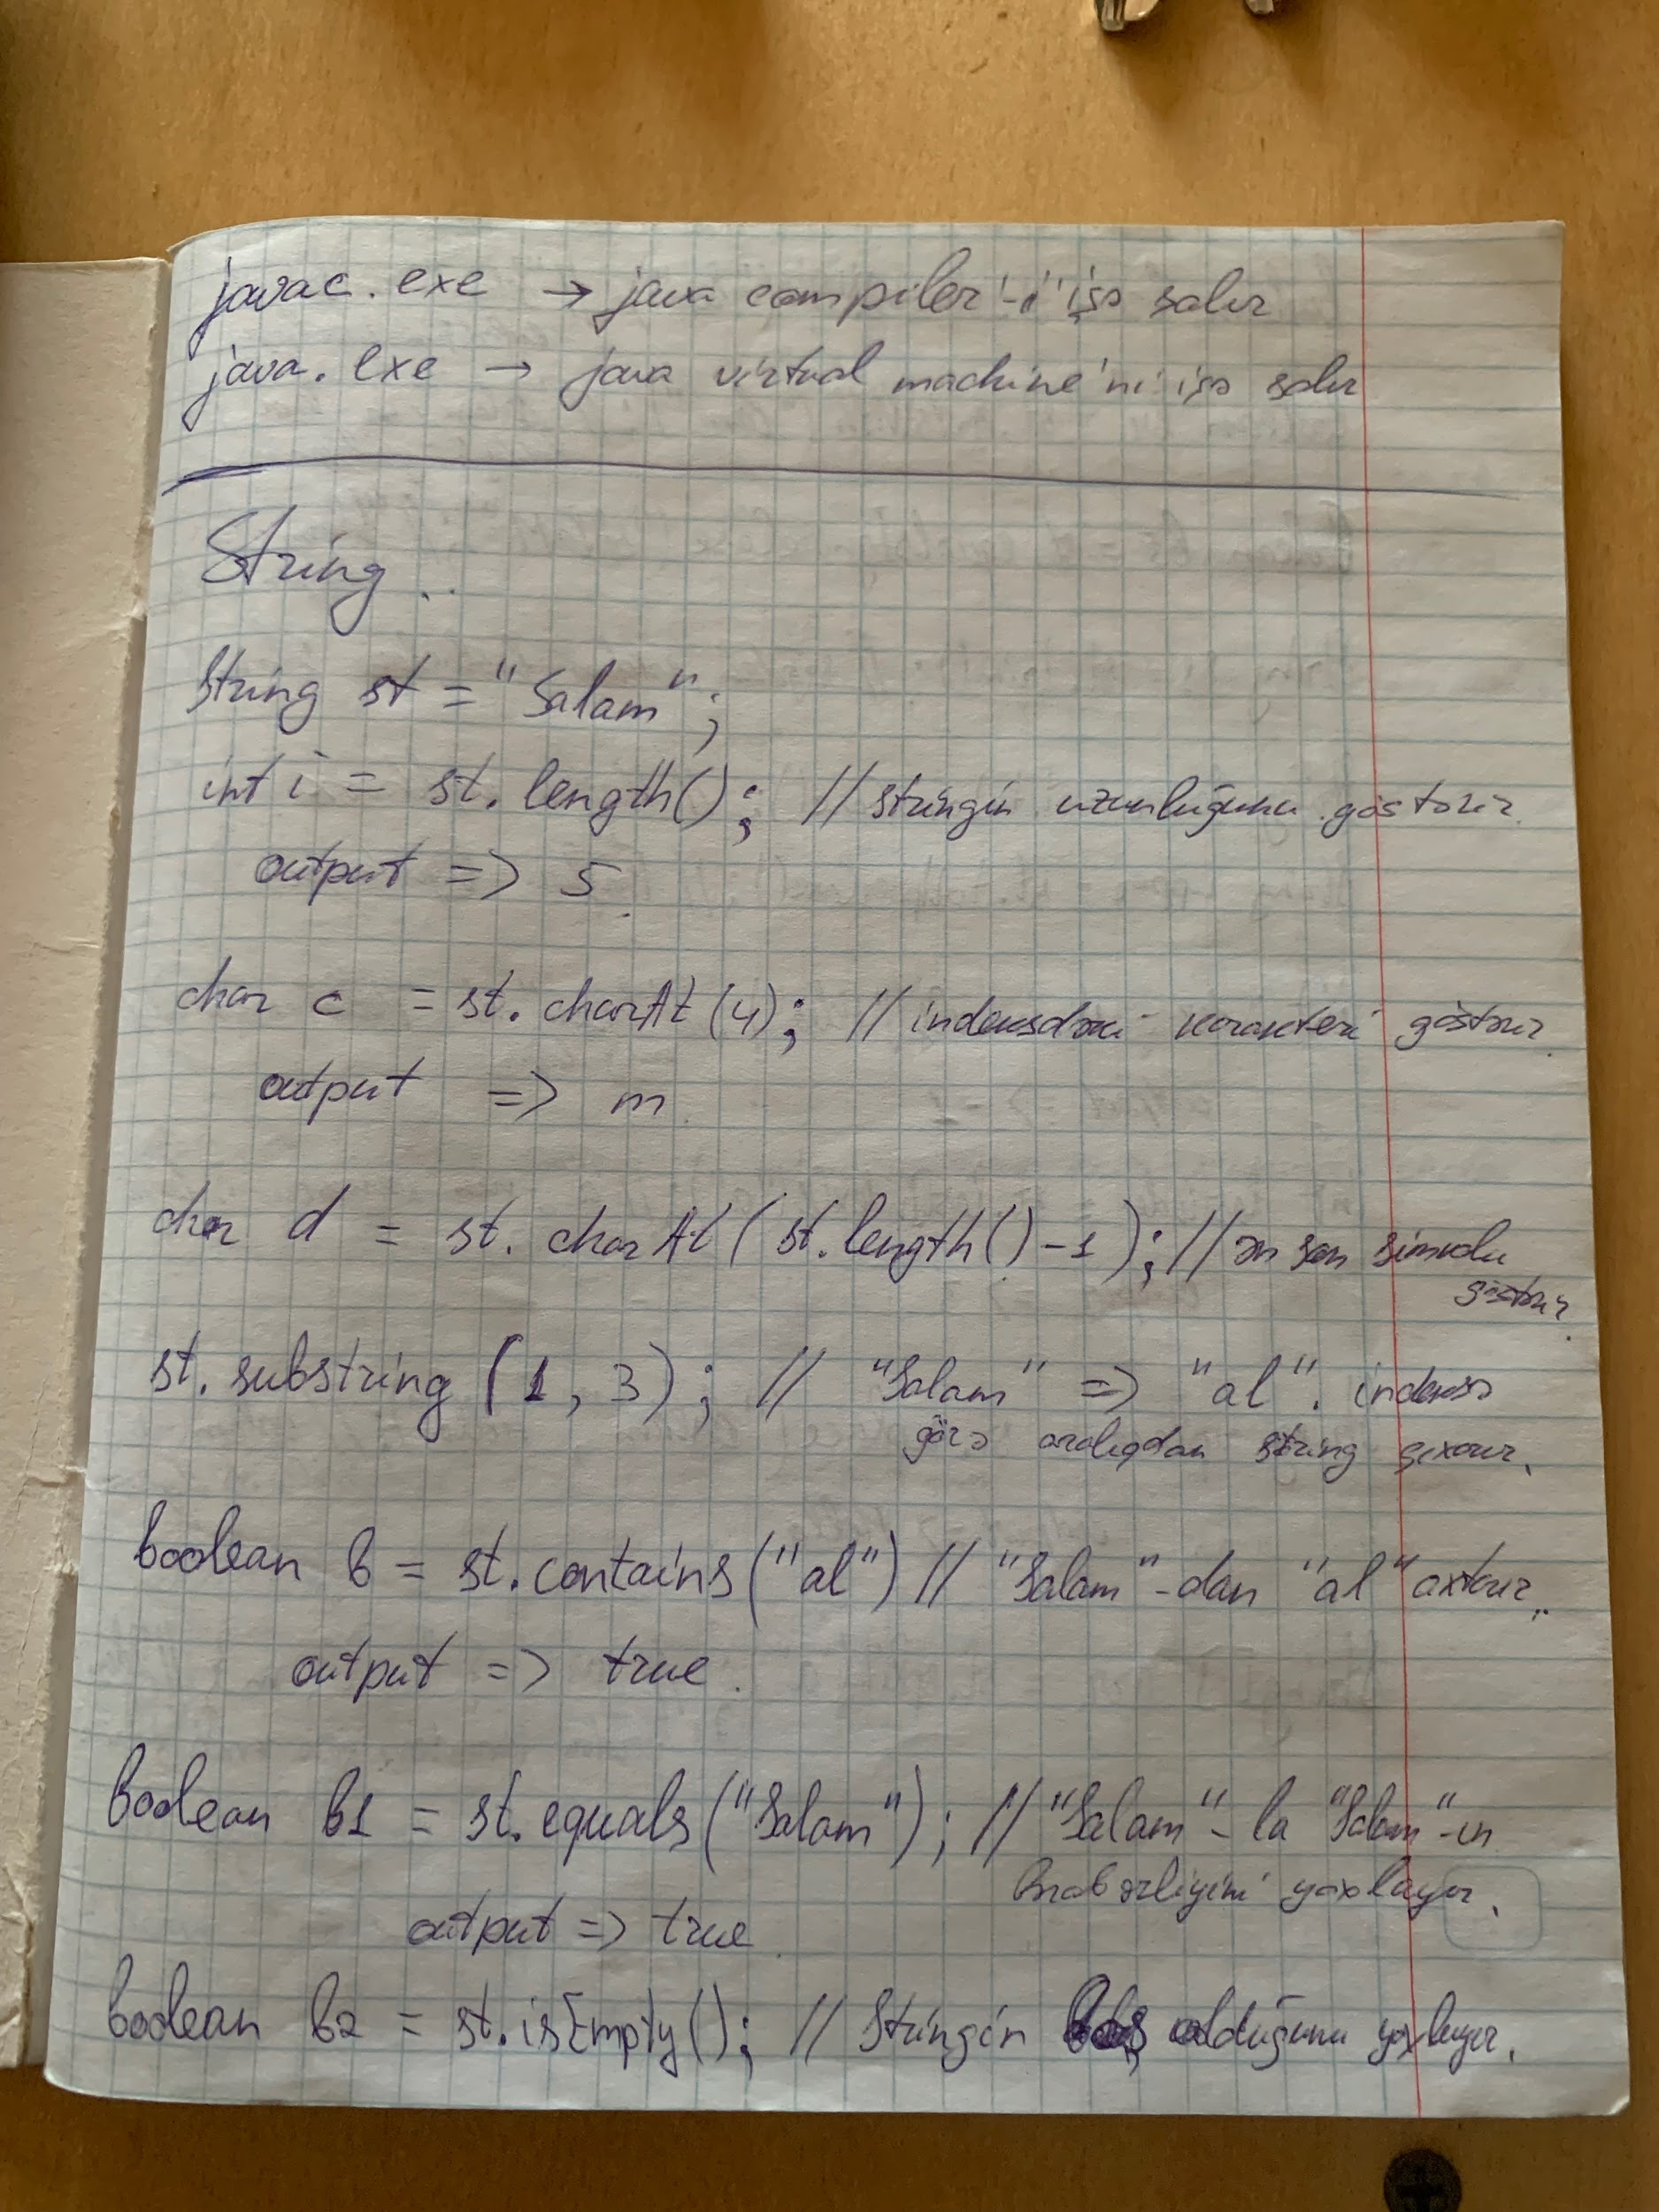 javac.exe → java compiler'-i işə salır
java.exe → java virtual machine'ni işə salır
String..
String st = "Salam";
int i = st.length(); // stringin uzunluğunu göstərir.
output => 5.
char c = st.charAt(4); // indeksdəki karakteri göstərir.
output => m.
char d = st.charAt(st.length()-1); // ən son simvolu
göstərir.
st.substring(1, 3); // "Salam" => "al". indeksə
görə aralıqdan string çıxarır.
boolean b = st.contains("al") // "Salam"-dan "al" axtarır..
output => true.
boolean b1 = st.equals("Salam"); // "Salam"-la "Salam"-ın
bərabərliyini yoxlayır.
output => true.
boolean b2 = st.isEmpty(); // Stringin boş olduğunu yoxlayır.